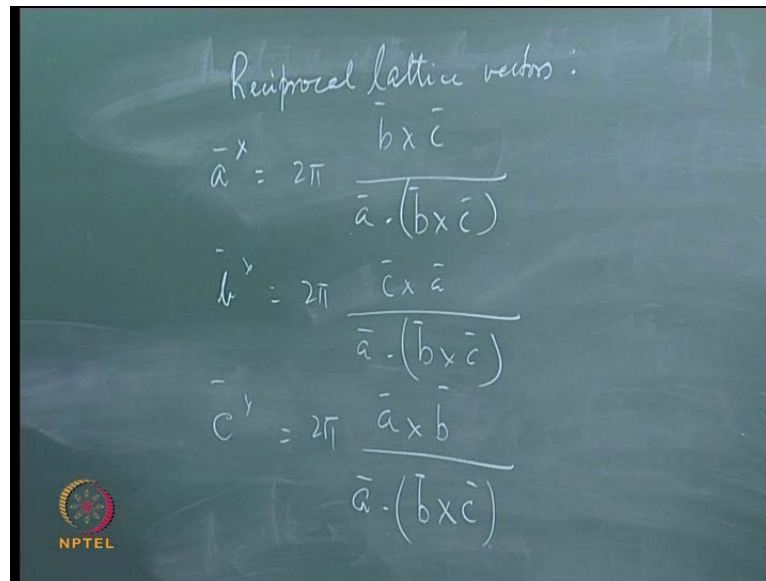 Reciprocal lattice vectors :
a̅ˣ = 2π (b̅ × c̅) / (a̅ . (b̅ × c̅))
b̅ˣ = 2π (c̅ × a̅) / (a̅ . (b̅ × c̅))
c̅ˣ = 2π (a̅ × b̅) / (a̅ . (b̅ × c̅))
NPTEL